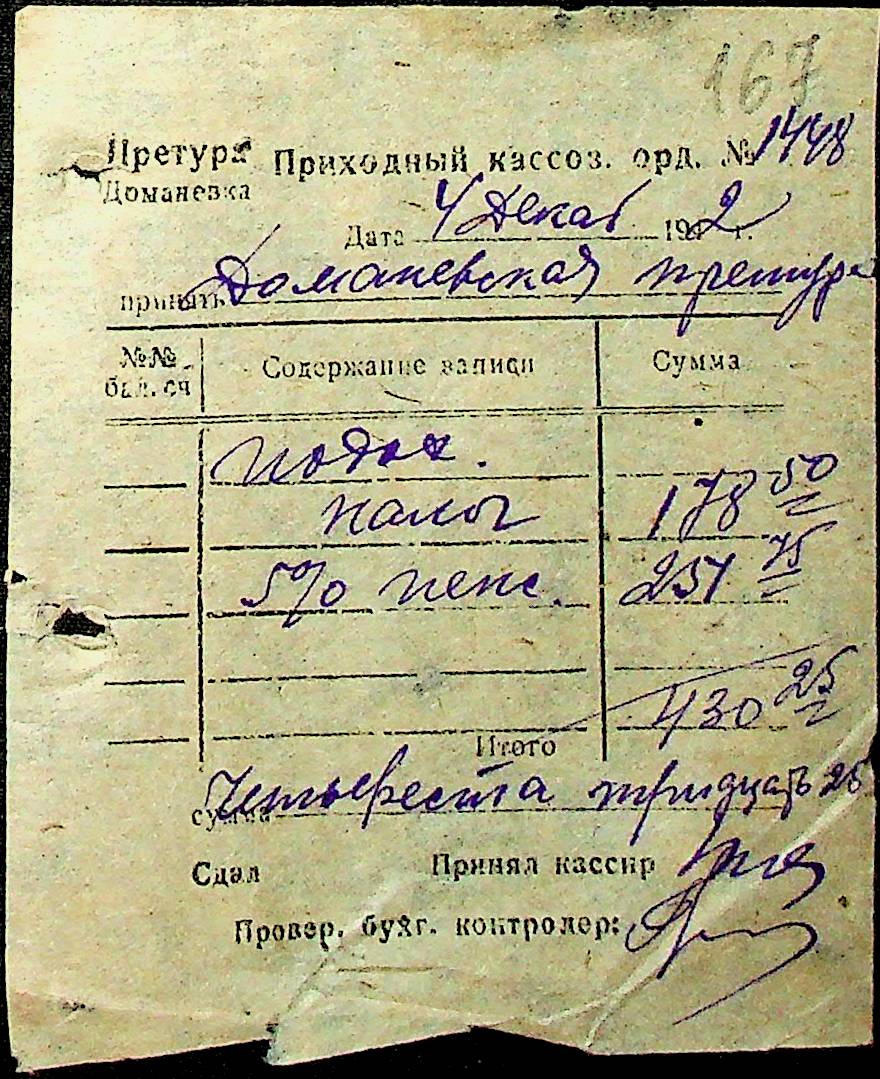 167
Претура Приходный кассов. орд. № 1448
Доманевка
Дата 4 Декаб 1942 г.
принять Доманевская претура
№№ бал. сч Содержание записи Сумма
подох.
налог 178 50
5% пенс. 251 75
Итого 430 25
сумма Четыреста тридцать 25
Сдал Принял кассир
Провер. бухг. контролер: